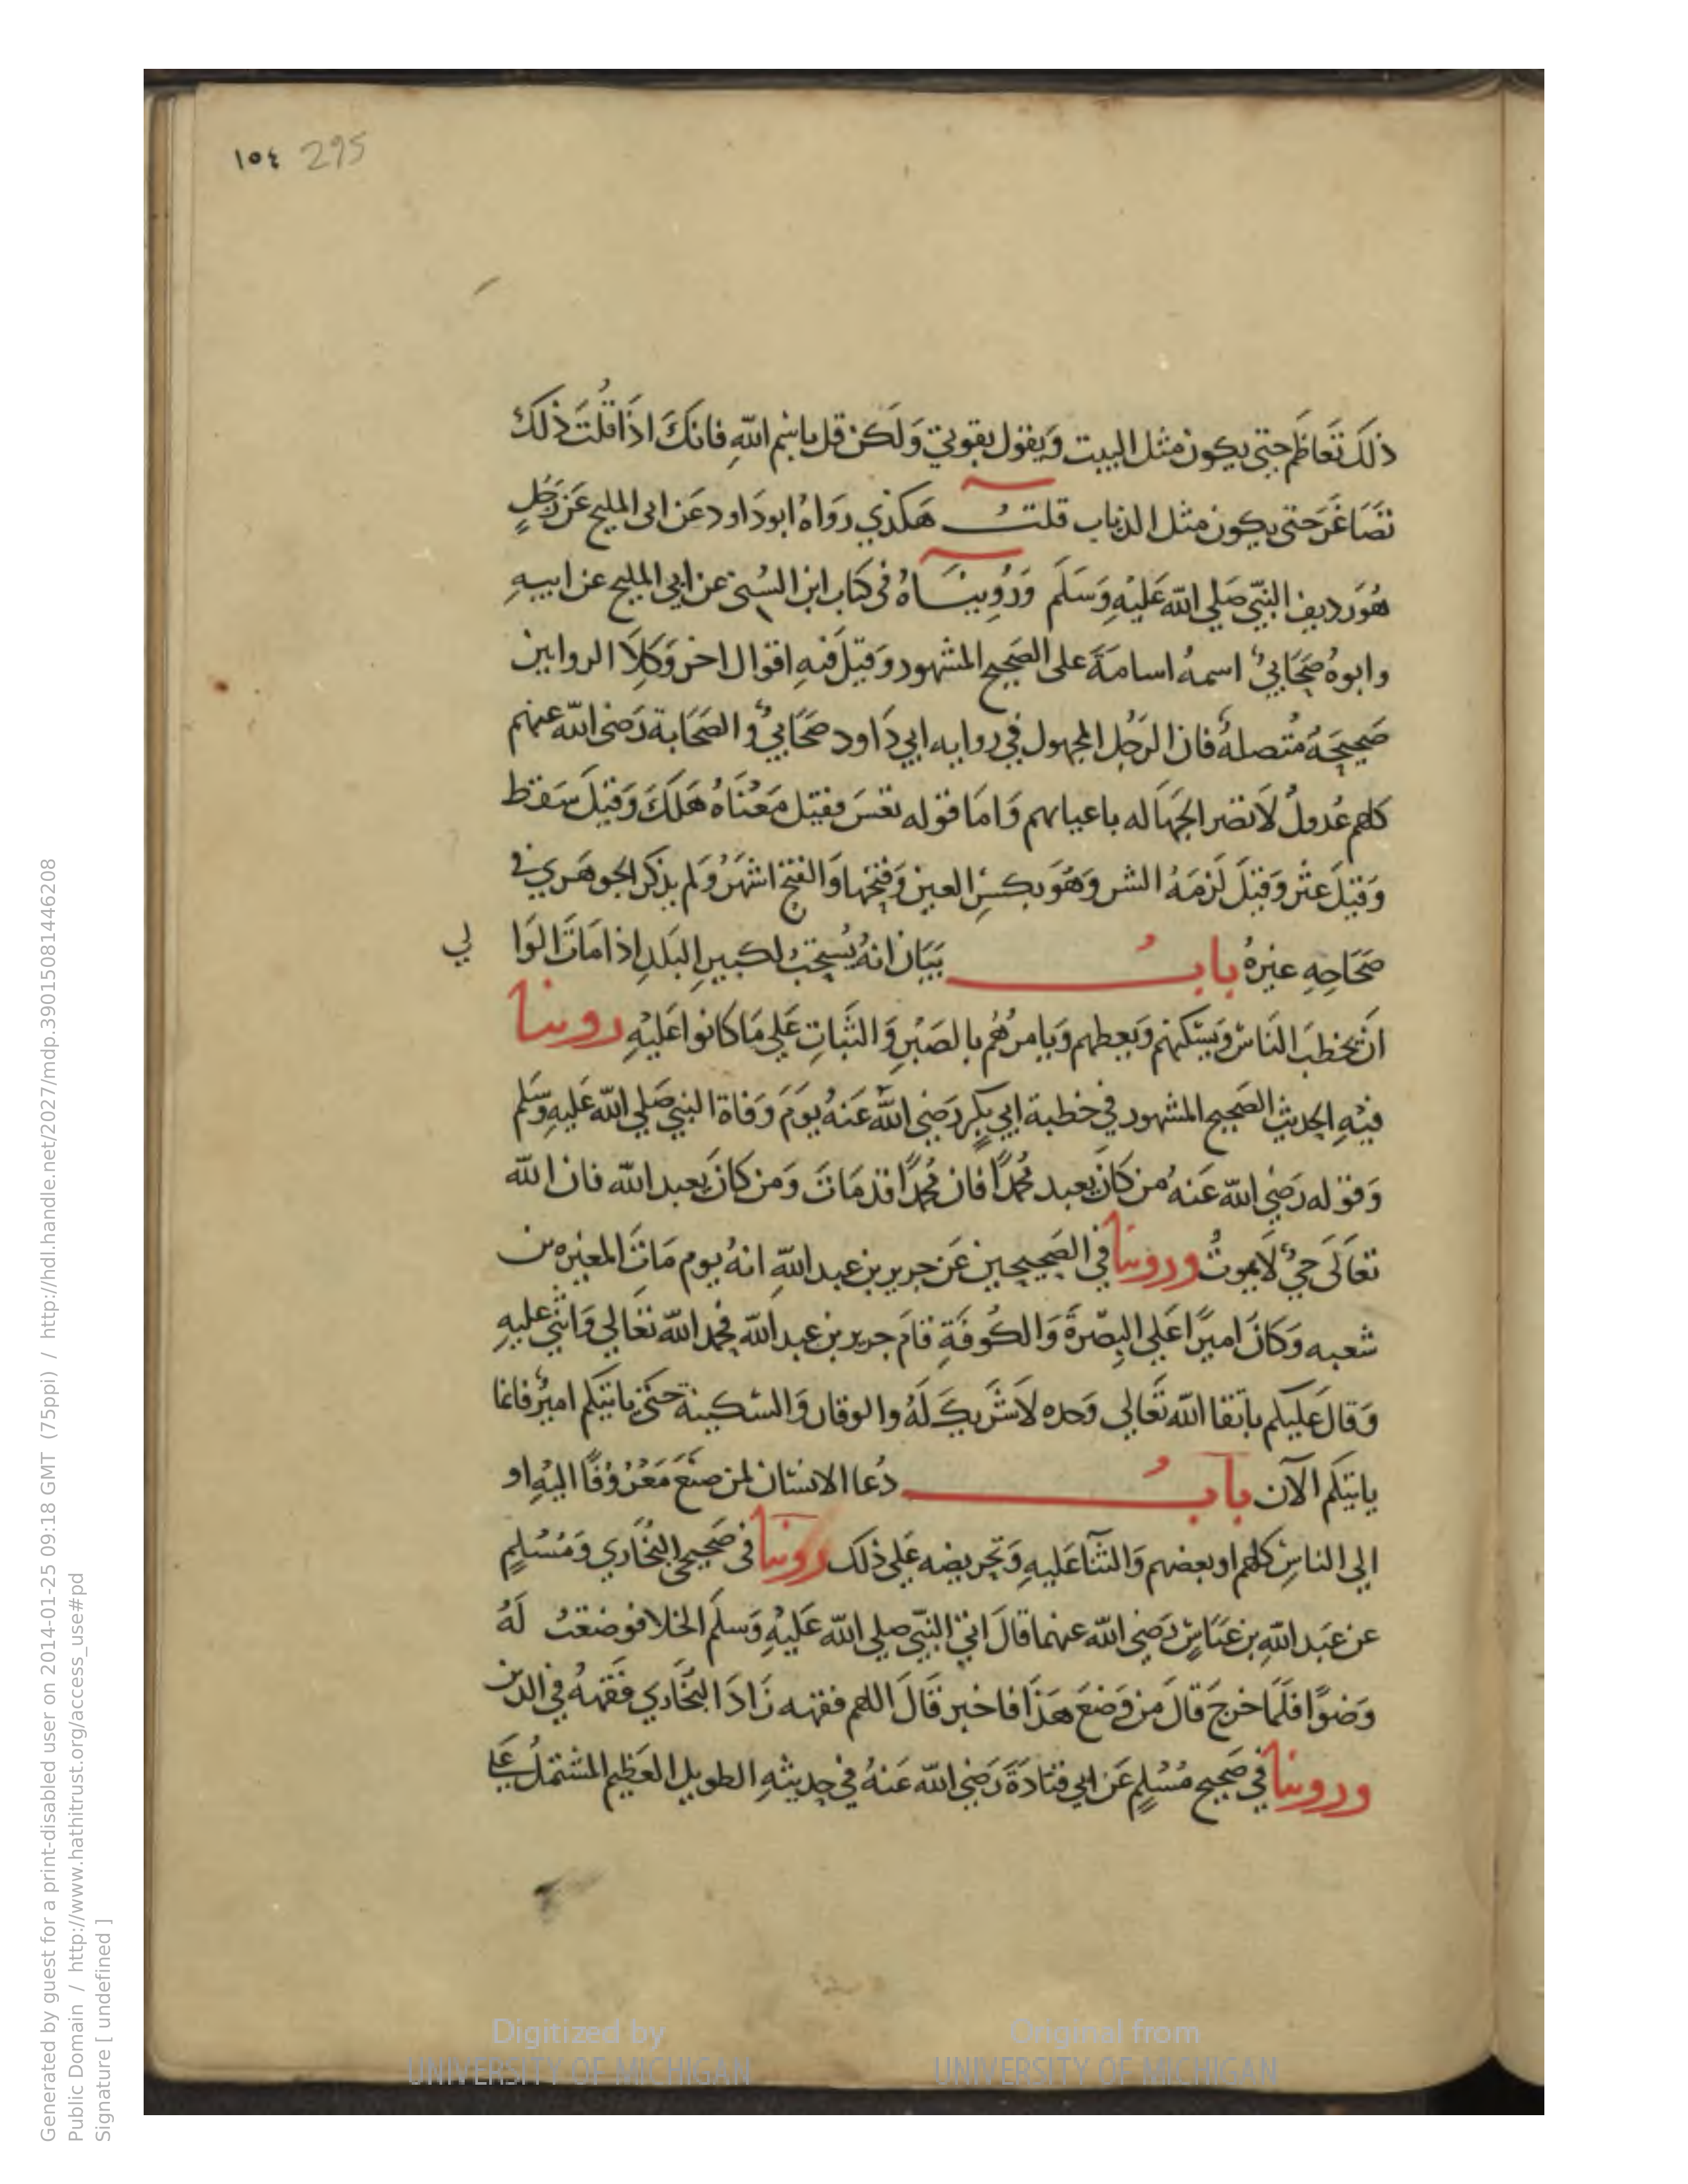 ١٥٤ 295
ذلَكَ تَعَاظَم حتى يكون مثل البيت وَيقول بقوتي وَلَكن قل باسْم اللهِ فانكَ اذَا قُلتَ ذلكَ
تَصَاغَرَ حتى يكون مثل الذباب قلتُ هَكذي رَوَاهُ ابودَاود عَن ابى المليح عَن رَجُلٍ
هُوَ رديف النبّي صَلي الله عَليْهِ وَسَلم وَرُوِيْنَاهُ فى كتاب ابن السُني عن ابي المليح عن ابيهِ
وابوهُ صَحَابيٌ اسمهُ اسامَةَ على الصَحيح المشهور وَقيلَ فيهِ اقوال اخر وَكِلَا الروايتين
صَحيحَهُ مُتصلهٌ فان الرَجُل المجهول في روايه ابي دَاود صَحَابيٌ والصَحَابة رَضى الله عنهم
كلهم عُدولٌ لاَ تضر الجَهَاله باعيانهم وَامَا قوله تعَسَ فقيل مَعْنَاهُ هَلَكَ وَقيلَ سَقط
وَقيلَ عثر وَقيلَ لَزمَهُ الشر وَهُوَ بكسْرِ العين وَفتحها وَالفتح اشهَرُ وَلم يذكر الجوهَري في
صَحَاحِهِ غيرهُ بابُ بَيَان انهُ يُستحبُ لكبيرِ البَلدِ اذا مَاتَ الوَا لي
اَن يخطبَ النَاسَ وَيسَكنهم وَيعظهم وَيامرُهُم بالصَبْرِ وَالثَبَاتِ عَلي مَا كانوا عَليْهِ روينا
فيْهِ الحديث الصَحيح المشهور في خطبة ابي بكرٍ رَضِي اللهُ عَنهُ يوَمَ وَفاة النبي صَلي الله عَليهِ وَسَلم
وَقوله رَضِي الله عَنهُ من كَانَ يعبد مُحمدًا فان مُحمدًا قد مَاتَ وَمن كانَ يعبد الله فان الله
تعَالَى حيٌ لاَ يموتُ وروينا في الصَحيحين عَن جرير بن عبد اللهِ انهُ يوم مَاتَ المغيره بن
شعبه وَكانَ اميرًا عَلي البِصْرةَ وَالكُوفَةِ قامَ جرير بن عبد الله فحمد الله تَعَالي وَاثنى عليهِ
وَقالَ عَليكم باتقا الله تَعَالي وَحده لاَ شَريكَ لَهُ والوقار وَالسَكينة حَتى ياتيكم اميرٌ فانما
ياتيكم الآن بابُ دُعا الانسَان لمن صنَعَ مَعْرُوْفًا اليْهِ او
الي الناسِ كلهم او بعضهم وَالثنآ عَليهِ وَتحريضه عَلي ذلك روينا فى صَحيحي البُخَاري وَمُسْلمٍ
عن عَبد اللهِ بن عَبَاسٍ رَضِي الله عنهما قالَ اتيَ النبّي صلي الله عَليْهِ وَسلَم الخلا فوضعتُ لَهُ
وَضوًا فلَمَا خرجَ قالَ من وَضعَ هَذَا فاخبر قَالَ اللهم فقهه زَادَ البُخَاري فَقههُ في الدين
وروينا في صَحيح مُسْلمٍ عَن ابي قتادَةَ رَضِي الله عَنهُ في حديثهِ الطويل العَظيم المشتملُ عَلي
Digitized by
UNIVERSITY OF MICHIGAN
Original from
UNIVERSITY OF MICHIGAN
Generated by guest for a print-disabled user on 2014-01-25 09:18 GMT (75ppi) / http://hdl.handle.net/2027/mdp.39015081446208
Public Domain / http://www.hathitrust.org/access_use#pd
Signature [ undefined ]